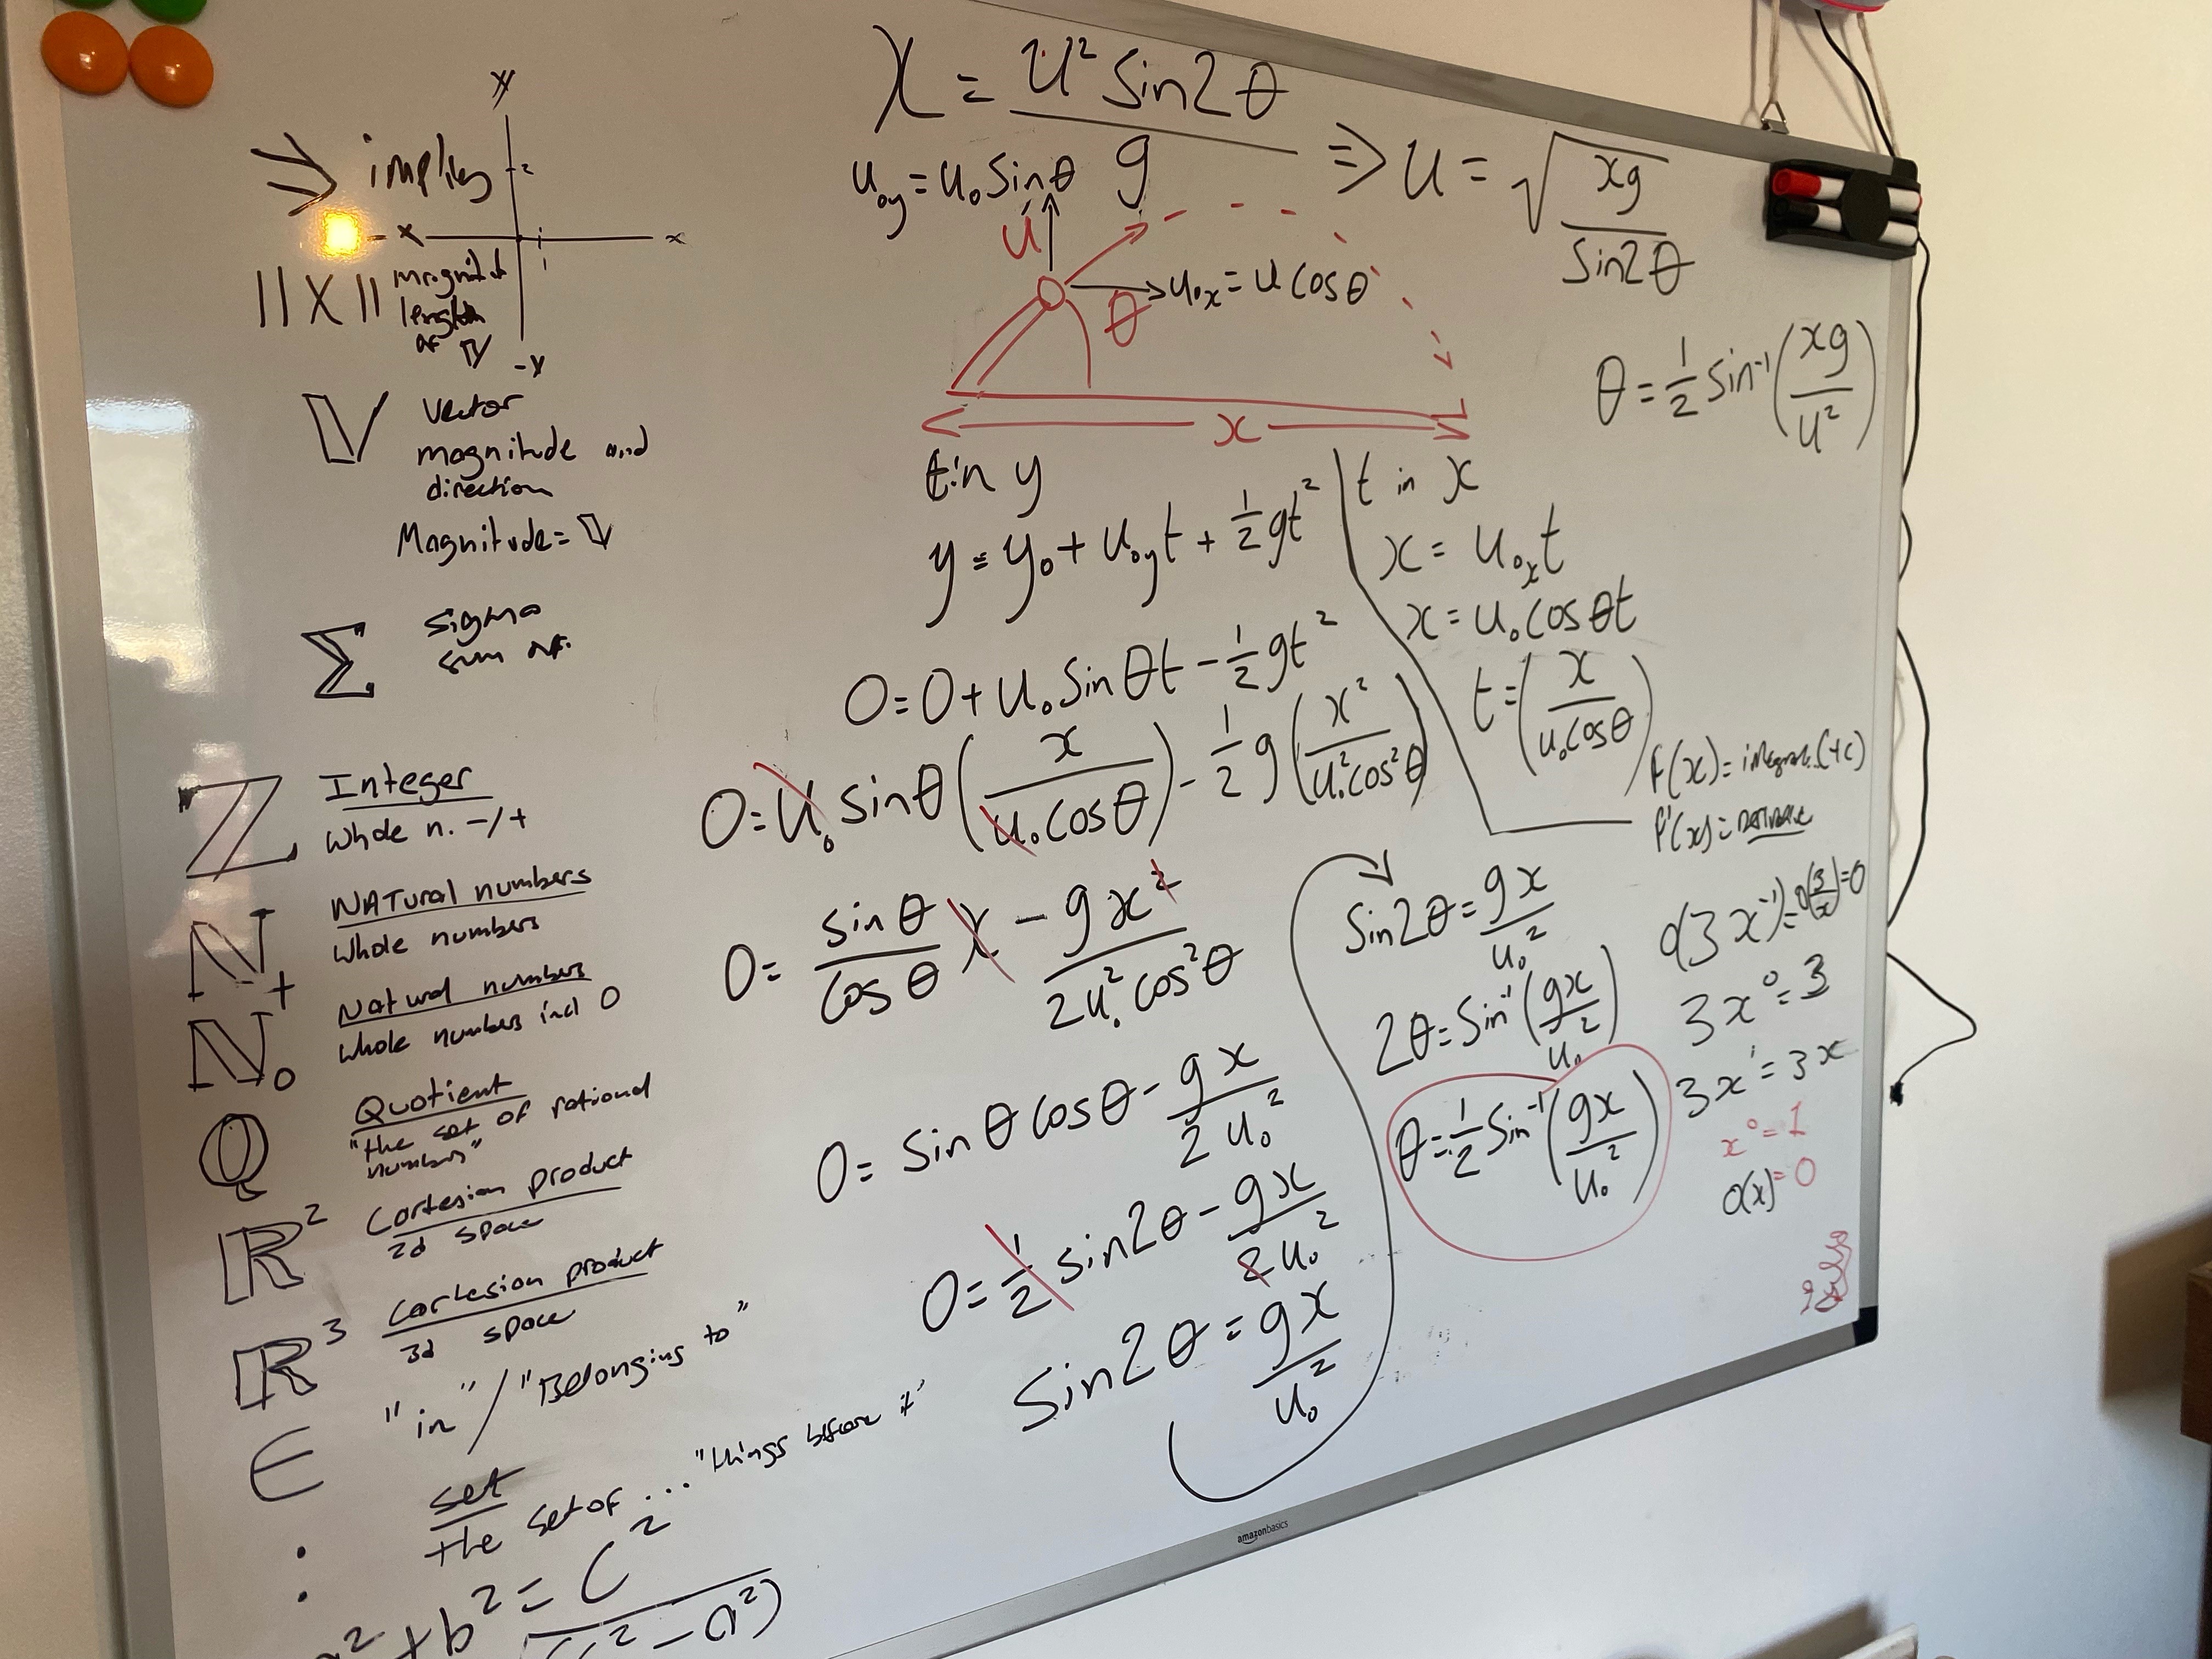 ⇒ implies
y
2
-x
x
1
-y
||X|| magnitud
length
of V
V vector
magnitude and
direction
Magnitude = V
Σ sigma
sum of.
Z Integer
whole n. -/+
N+ NATural numbers
whole numbers
N₀ Natural numbers
whole numbers incl 0
Q Quotient
"the set of rational
numbers"
R² Cartesian product
2d space
R³ Cartesian product
3d space
∈ "in" / "Belonging to"
: set
the set of ... "things before it"
a² + b² = c²
x = u² sin2θ / g ⇒ u = √(xg / sin2θ)
u₀y = u₀ sinθ
u
θ
u₀x = u cosθ
x
θ = 1/2 sin⁻¹(xg / u²)
t in y
y = y₀ + u₀y t + 1/2 gt²
0 = 0 + u₀ sinθt - 1/2 gt²
0 = u₀ sinθ (x / u₀ cosθ) - 1/2 g (x² / u₀² cos²θ)
0 = sinθ / cosθ x - gx² / 2u₀² cos²θ
0 = sinθ cosθ - gx / 2u₀²
0 = 1/2 sin2θ - gx / 2u₀²
sin2θ = gx / u₀²
t in x
x = u₀x t
x = u₀ cosθt
t = (x / u₀ cosθ)
sin2θ = gx / u₀²
2θ = sin⁻¹(gx / u₀²)
θ = 1/2 sin⁻¹(gx / u₀²)
f'(x) =
3x⁰ = 3
3x¹ = 3x
x⁰ = 1
amazonbasics